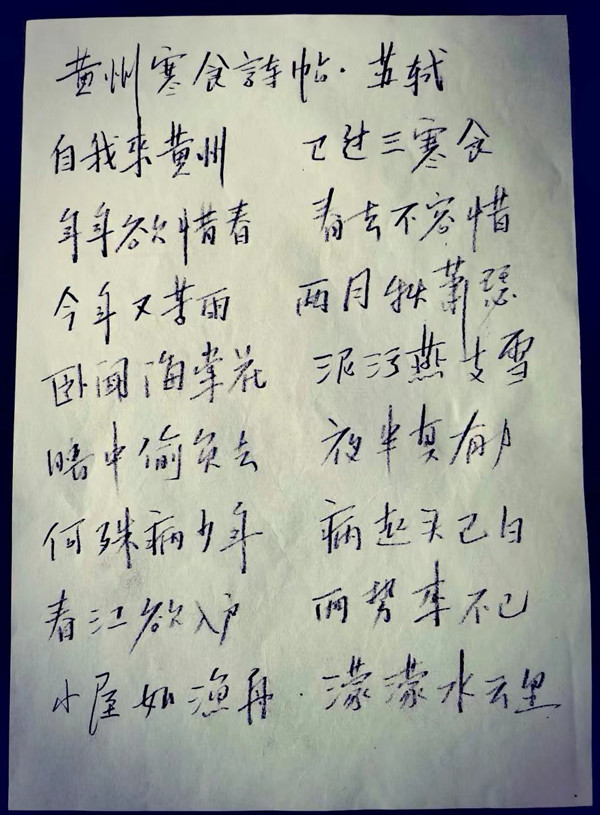 黄州寒食诗帖·苏轼
自我来黄州 已过三寒食
年年欲惜春 春去不容惜
今年又苦雨 两月秋萧瑟
卧闻海棠花 泥污燕支雪
暗中偷负去 夜半真有力
何殊病少年 病起头已白
春江欲入户 雨势来不已
小屋如渔舟·濛濛水云里